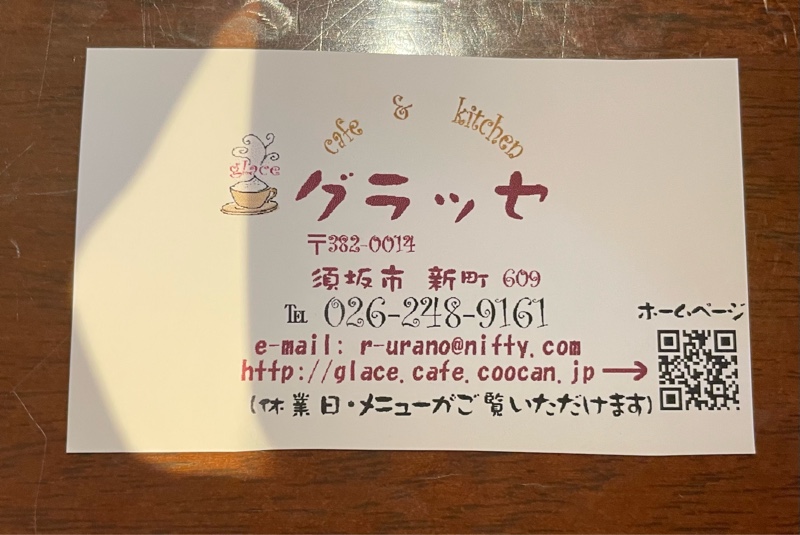 cafe & kitchen
glace
グラッセ
〒382-0014
須坂市 新町 609
℡ 026-248-9161
ホームページ
e-mail: r-urano@nifty.com
http://glace.cafe.coocan.jp→
(休業日・メニューがご覧いただけます)